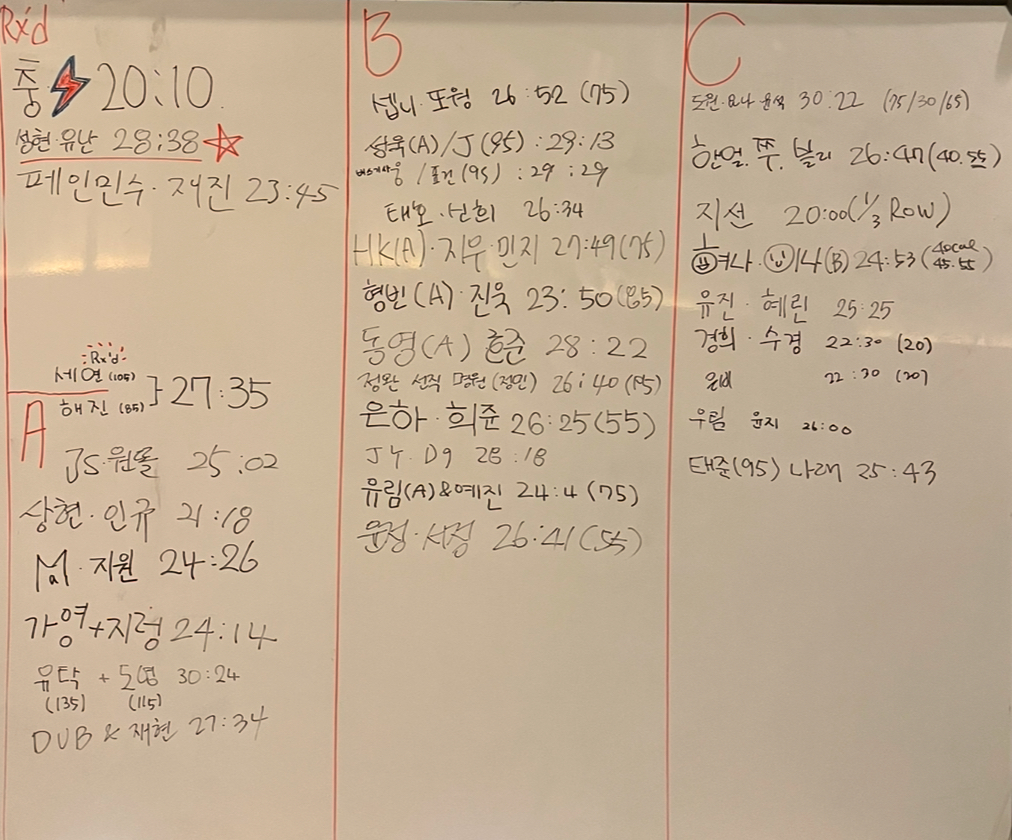 Rx'd
충 20:10
성현·유난 28:38
페인민수·재진 23:45
Rx'd
세연 (105)
해진 (85) } 27:35
A
JS·원몰 25:02
상현·인규 21:18
지원 24:26
가영+지령 24:14
유탁 + 도영 30:24
(135) (115)
DUB & 재현 27:34
B
셉니·또렁 26:52 (75)
상욱(A)/J(95) :29:13
/표건(95) :29:29
태호·선희 26:34
HK(A)·지우·민지 27:49(75)
형빈(A)·진욱 23:50(85)
동영(A) 효준 28:22
정완 선직 명원(정민) 26:40
은하·희준 26:25(55)
JY·D9 28:18
유림(A)&예진 24:4 (75)
윤정·서정 26:41(55)
C
도원·요나 윤석 30:22 (75/30/65)
한얼.쭈.블리 26:47(40.55)
지선 20:00(1/3 Row)
24:53
유진·혜린 25:25
경희·수경 22:30 (20)
은비 22:30 (20)
우림 윤지 26:00
태준(95) 나래 25:43